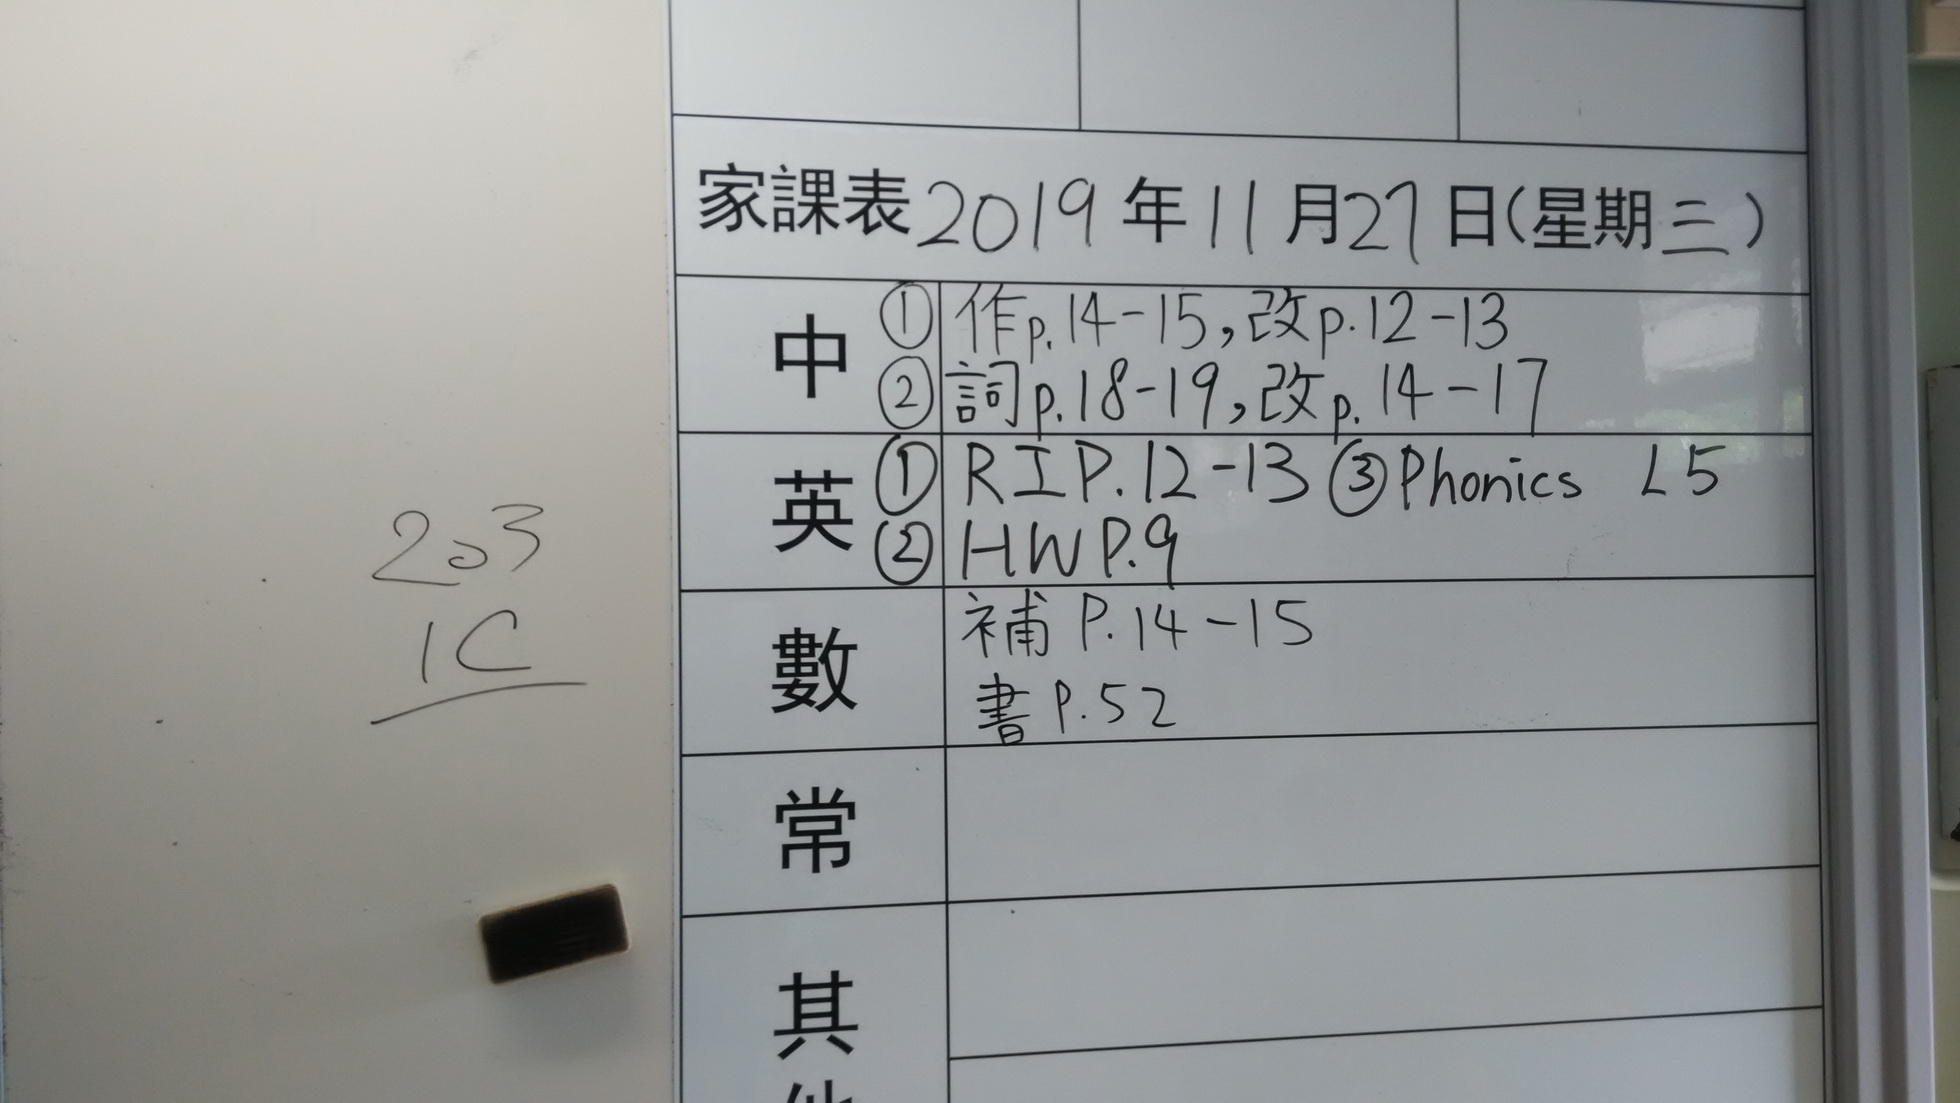 家課表 2019年11月27日(星期三)
中 ① 作p.14-15,改p.12-13
② 詞p.18-19,改p.14-17
英 ① RIP.12-13 ③Phonics L5
② HW P.9
數 補 P.14-15
書 P.52
常
其
他
203
1C